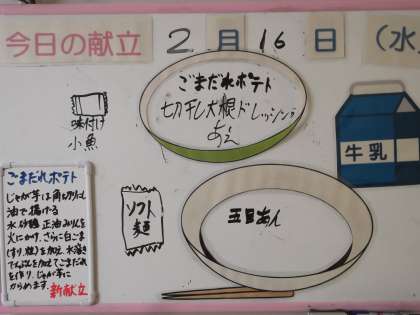 今日の献立 2月16日(水
ごまだれポテト
切干し大根ドレッシング
あえ
味付け
小魚
牛乳
ソフト
麺
五目あん
ごまだれポテト
じゃが芋は角切りにし
油で揚げる
水、砂糖、正油、みりんを
火にかけ、さらに白ごま
(すり、粒)を加え、水溶き
でんぷんを加えてごまだれ
を作り、じゃが芋に
からめます。新献立